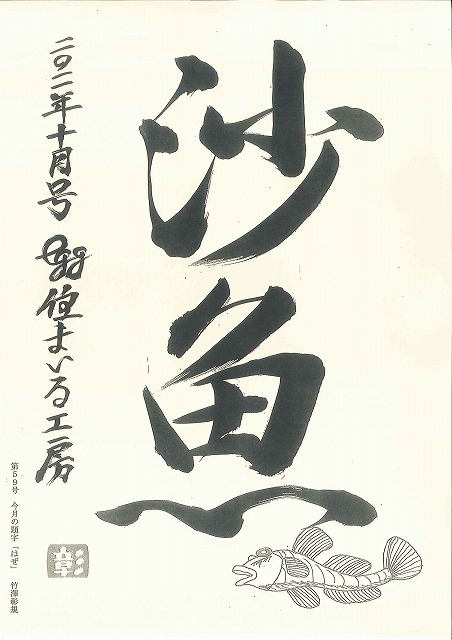 沙魚
二〇一一年十月号 ㈲住まいる工房
第59号 今月の題字「はぜ」 竹澤彰規
彰